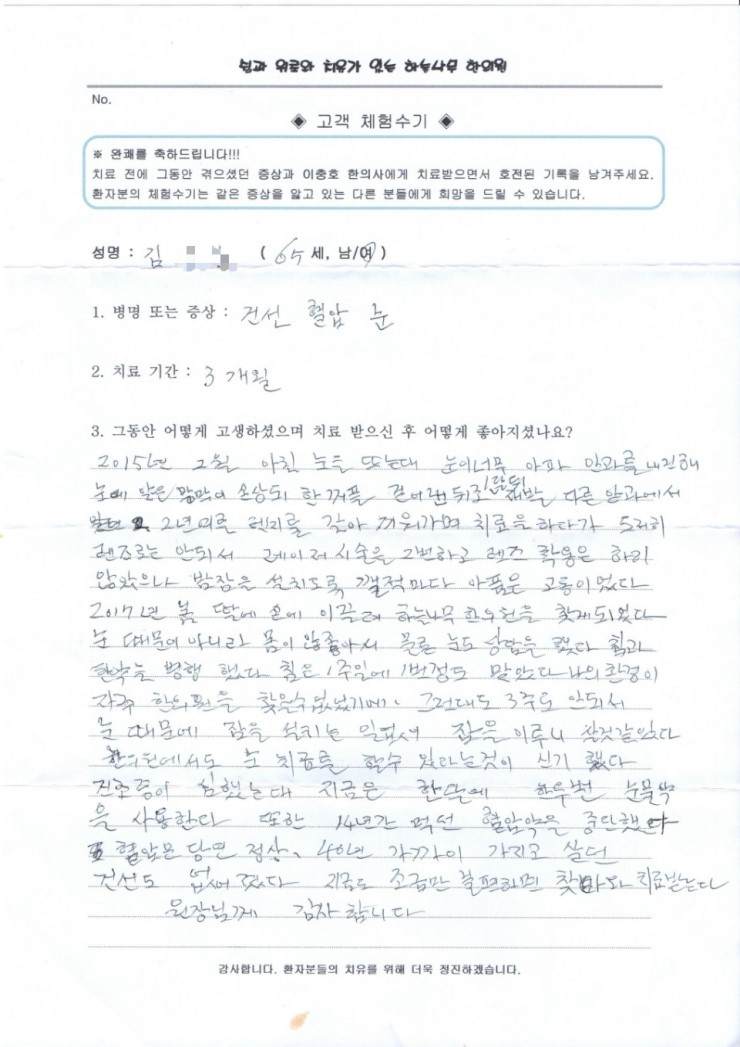 쉼과 위로와 치유가 있는 하늘나무 한의원
No.
◈ 고객 체험수기 ◈
※ 완쾌를 축하드립니다!!!
치료 전에 그동안 겪으셨던 증상과 이충호 한의사에게 치료받으면서 호전된 기록을 남겨주세요.
환자분의 체험수기는 같은 증상을 앓고 있는 다른 분들에게 희망을 드릴 수 있습니다.
성명 : 김 ( 65 세, 남/여 )
1. 병명 또는 증상 : 건선 혈압 눈
2. 치료 기간 : 3개월
3. 그동안 어떻게 고생하셨으며 치료 받으신 후 어떻게 좋아지셨나요?
2015년 2월 아침 눈을 뜨는대 눈이너무 아파 안과를 내진해
눈에 얇은 망막이 손상되 한꺼풀 걷어낸뒤로 1달뒤 재발 다른 안과에서
2년여를 렌즈를 갈아 껴워가며 치료을 하다가 도저히
렌즈로는 안되서 레이저 시술을 2번하고 렌즈 착용은 하지
않았으나 밤잠을 설치도록 깰적마다 아픔은 고통이었다
2017년 봄 딸에 손에 이끌려 하늘나무 한의원을 찾게되었다
눈 때문에 아니라 몸이 않좋아서 물론 눈도 상담을 했다 침과
한약을 병행 했다 침은 1주일에 1번정도 맞았다 나의 환경이
자주 한의원을 찾을수 없었기에. 그런대도 3주도 안되서
눈 때문에 잠을 설치는 일없어 잠을 이루니 살것같았다
한의원에서도 눈 치료를 할수 있다는것이 신기 했다
건조증이 심했는대 지금은 한달에 한두번 눈물약
을 사용한다 또한 14년간 먹던 혈압약을 중단했다
혈압은 당연 정상. 40년 가까이 가지고 살던
건선도 없어 졌다 지금도 조금만 불편하면 찾아와 치료받는다
원장님께 감사 합니다
감사합니다. 환자분들의 치유를 위해 더욱 정진하겠습니다.